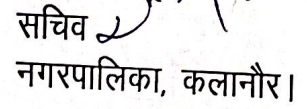 सचिव
नगरपालिका, कलानौर।